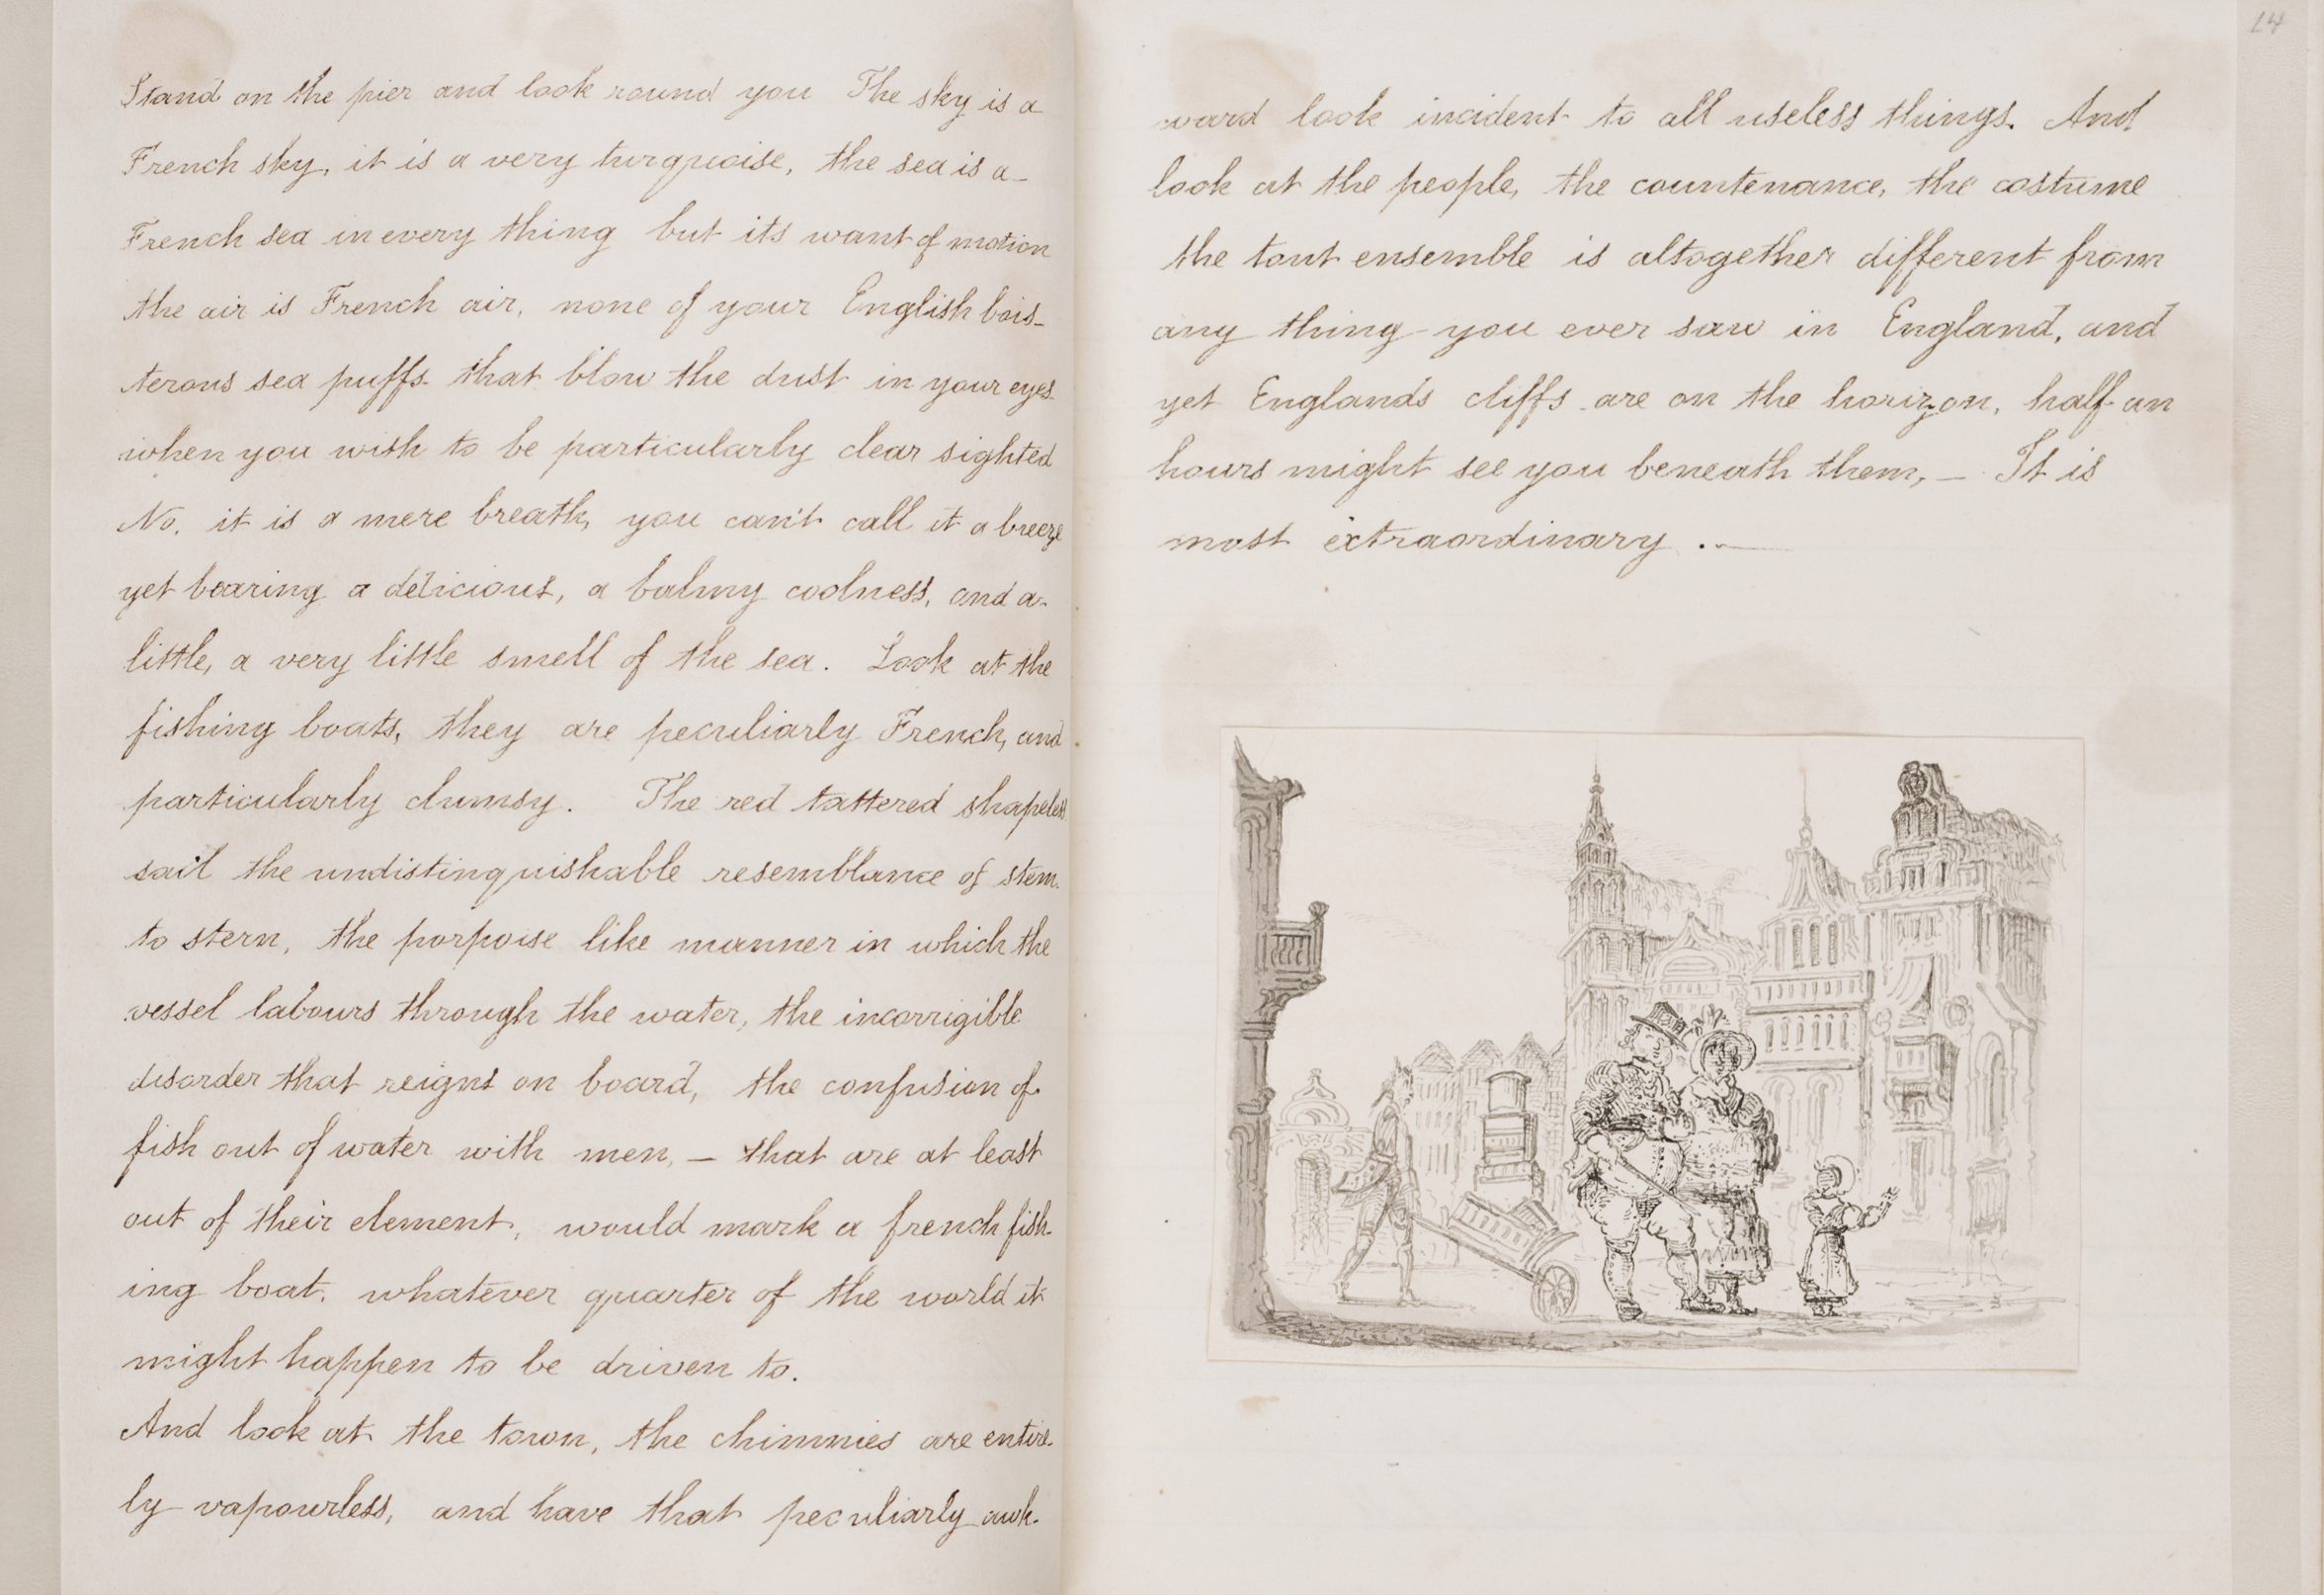 Stand on the pier and look round you The sky is a
French sky, it is a very turquoise, the sea is a
French sea in every thing but its want of motion
the air is French air, none of your English bois-
terous sea puffs that blow the dust in your eyes
when you wish to be particularly clear sighted
No, it is a mere breath, you can't call it a breeze
yet bearing a delicious, a balmy coolness, and a
little, a very little smell of the sea. Look at the
fishing boats, they are peculiarly French, and
particularly clumsy. The red tattered shapeless
sail the undistinguishable resemblance of stem
to stern, the porpoise like manner in which the
vessel labours through the water, the incorrigible
disorder that reigns on board, the confusion of
fish out of water with men, — that are at least
out of their element, would mark a french fish-
ing boat, whatever quarter of the world it
might happen to be driven to.
And look at the town, the chimnies are entire-
ly vapourless, and have that peculiarly awk-
14
ward look incident to all useless things. And
look at the people, the countenance, the costume
the tout ensemble is altogether different from
any thing you ever saw in England, and
yet Englands cliffs are on the horizon, half an
hours might see you beneath them, — It is
most extraordinary . —